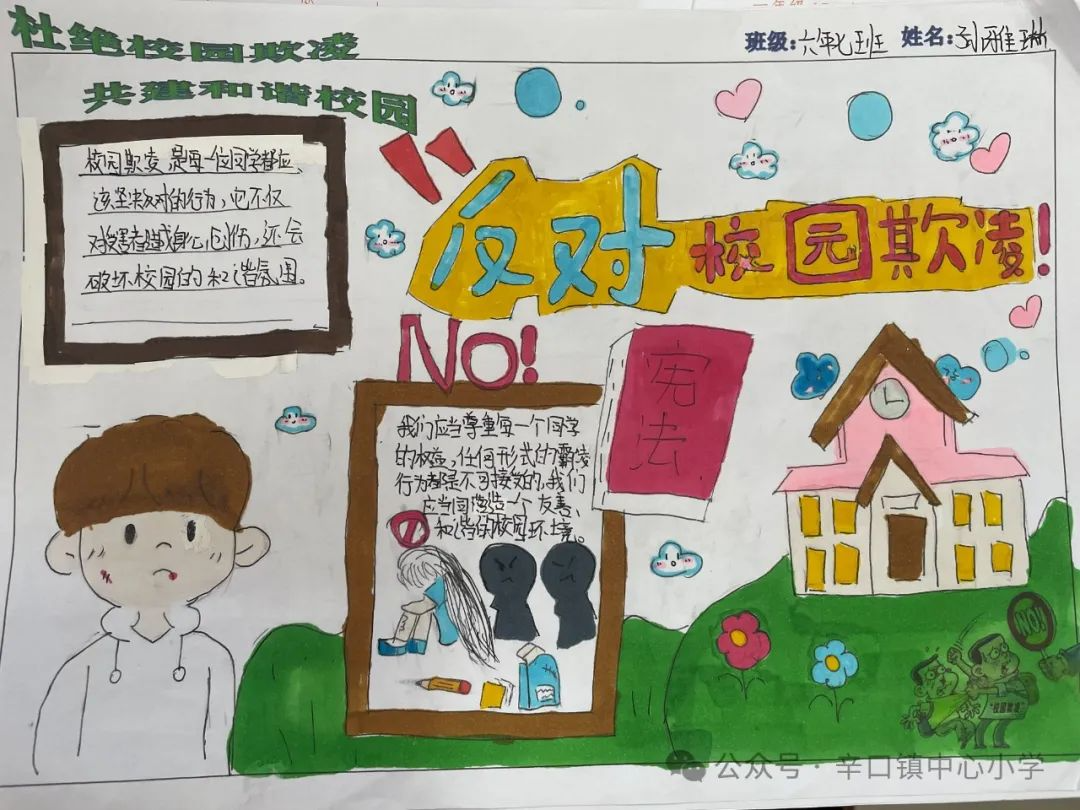 杜绝校园欺凌
共建和谐校园
班级:六年七班 姓名:孙雅琳
校园欺凌,是每一位同学都应
该坚决反对的行为,它不仅
对受害者造成身心创伤,还会
破坏校园的和谐氛围。
反对校园欺凌!
NO!
宪法
我们应当尊重每一个同学
的权益,任何形式的霸凌
行为都是不可接受的,我们
应当同造一个友善、
和谐的校园环境。
NO!
"校园欺凌"
公众号·辛口镇中心小学